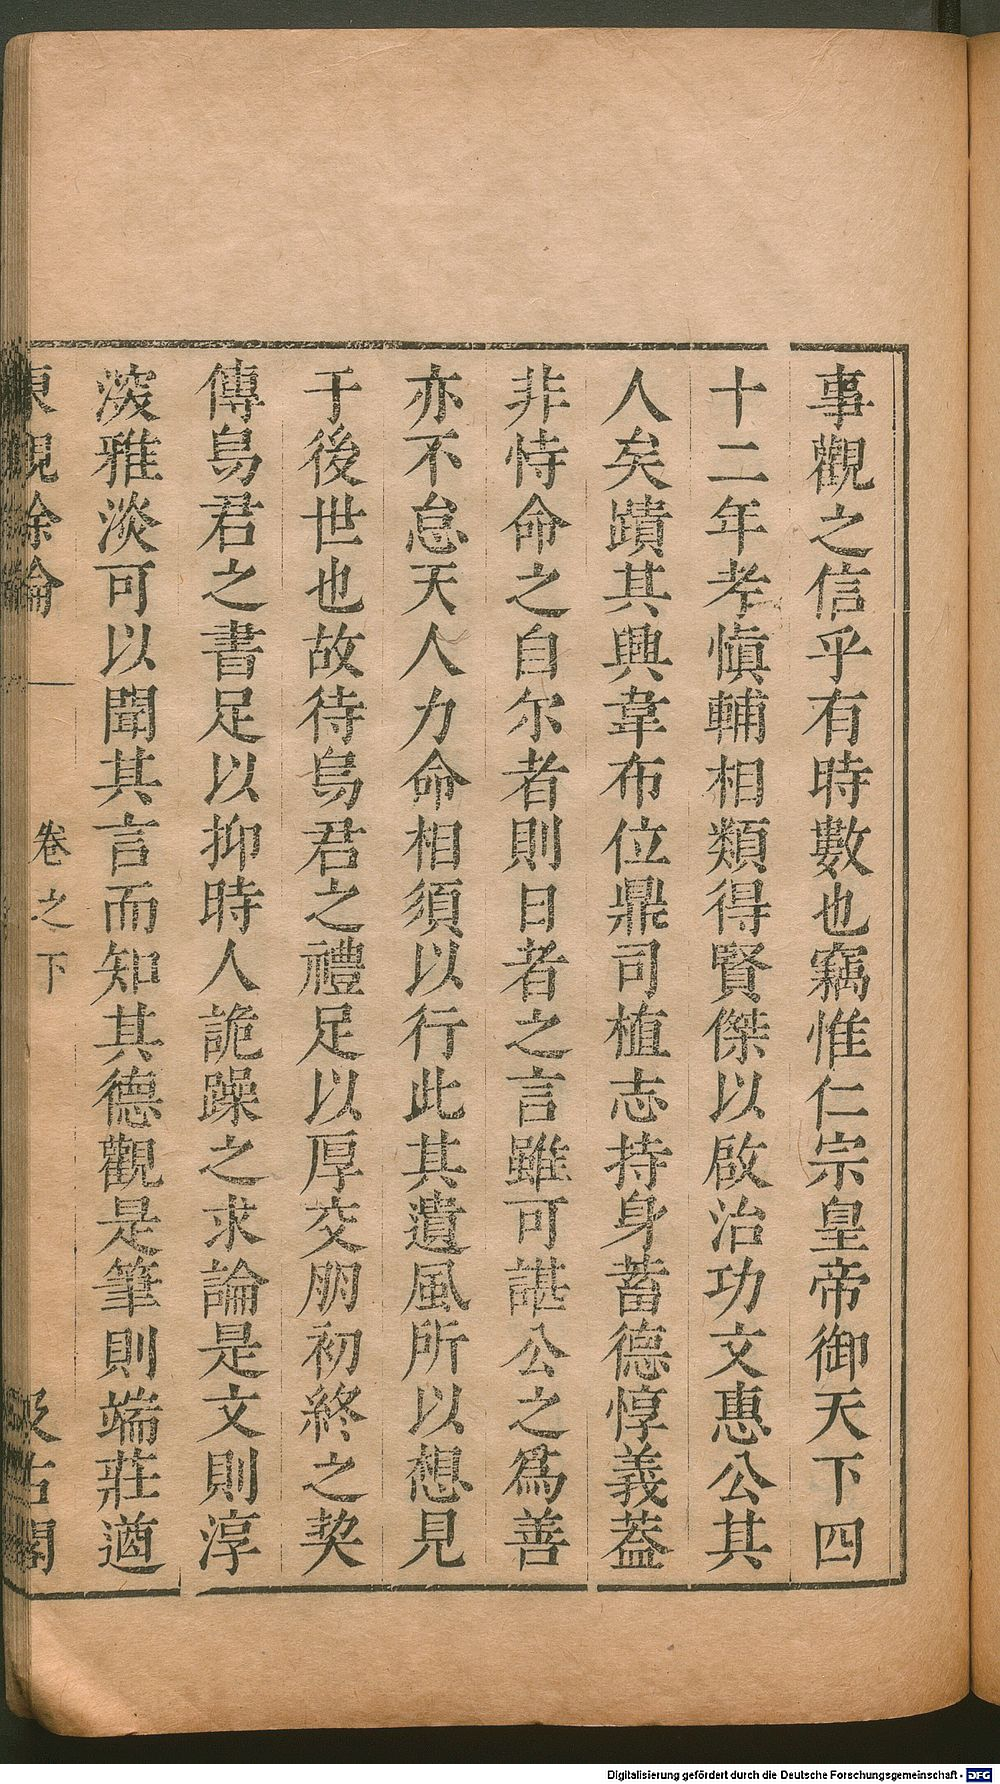 事觀之信乎有時數也竊惟仁宗皇帝御天下四
十二年孝愼輔相類得賢傑以啟治功文惠公其
人矣蹟其興韋布位鼎司植志持身蓄德惇義葢
非恃命之自尔者則日者之言雖可諶公之爲善
亦不怠天人力命相須以行此其遺風所以想見
于後世也故待舄君之禮足以厚交朋初終之契
傳舄君之書足以抑時人詭躁之求論是文則淳
淡雅淡可以聞其言而知其德觀是筆則端莊遒
東觀餘論 卷之下 汲古閣
Digitalisierung gefördert durch die Deutsche Forschungsgemeinschaft - DFG